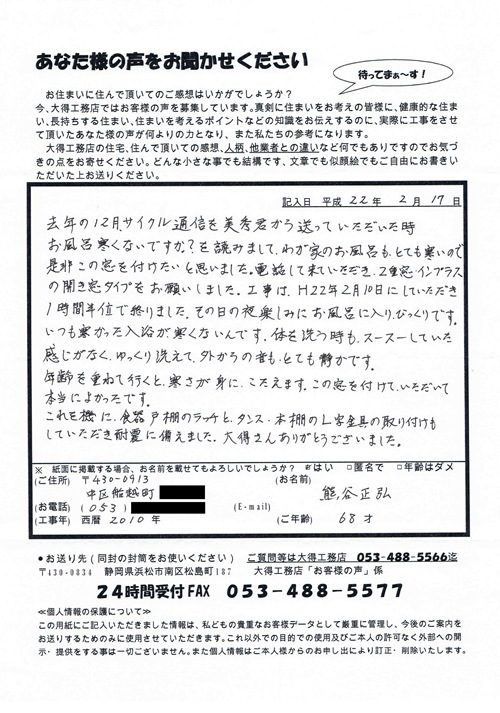 あなた様の声をお聞かせください
待ってまぁ～す！
お住まいに住んで頂いてのご感想はいかがでしょうか？
今、大得工務店ではお客様の声を募集しています。真剣に住まいをお考えの皆様に、健康的な住ま
い、長持ちする住まい、住まいを考えるポイントなどの知識をお伝えするのに、実際に工事をさせ
て頂いたあなた様の声が何よりの力となり、また私たちの参考になります。
大得工務店の住宅、住んで頂いての感想、人柄、他業者との違いなど何でもありですのでお気づ
きの点をお寄せください。どんな小さな事でも結構です、文章でも似顔絵でもご自由にお書きい
ただいた上お送りください。
記入日 平成 22 年 2 月 17 日
去年の12月、サイクル通信を美秀君から送っていただいた時
お風呂寒くないですか？を読みまして、わが家のお風呂も、とても寒いので
是非この窓を付けたいと思いました。電話して来ていただき、2重窓・インプラス
の開き窓タイプをお願いしました。工事は、H22年2月10日にしていただき
1時間半位で終りました。その日の夜楽しみにお風呂に入り、びっくりです。
いつも寒かった入浴が寒くないんです。体を洗う時も、スースーしていた
感じがなく、ゆっくり洗えて、外からの音も、とても静かです。
年齢を重ねて行くと、寒さが身に、こたえます。この窓を付けて、いただいて
本当によかったです。
これを機に、食器戸棚のラッチと、タンス・本棚のL字金具の取り付けも
していただき耐震に備えました。大得さんありがとうございました。
※ 紙面に掲載する場合、お名前を載せてもよろしいでしょうか？ はい □匿名で □年齢はダメ
(ご住所) 〒430-0913 (お名前)
中区船越町 熊谷正弘
(お電話) (053) (E-mail)
(工事年) 西暦 2010 年 (ご年齢) 68 才
●お送り先（同封の封筒をお使いください） ご質問等は大得工務店 053-488-5566迄
〒430-0834 静岡県浜松市南区松島町187 大得工務店「お客様の声」係
24時間受付FAX 053-488-5577
≪個人情報の保護について≫
この用紙にご記入いただきました情報は、私どもの貴重なお客様データとして厳重に管理し、今後のご案内を
お送りするためのみに使用させていただきます。これ以外での目的での使用及びご本人の許可なく外部への開
示・提供をする事は一切ございません。また個人情報はご本人様からのお申し出により訂正・削除いたします。